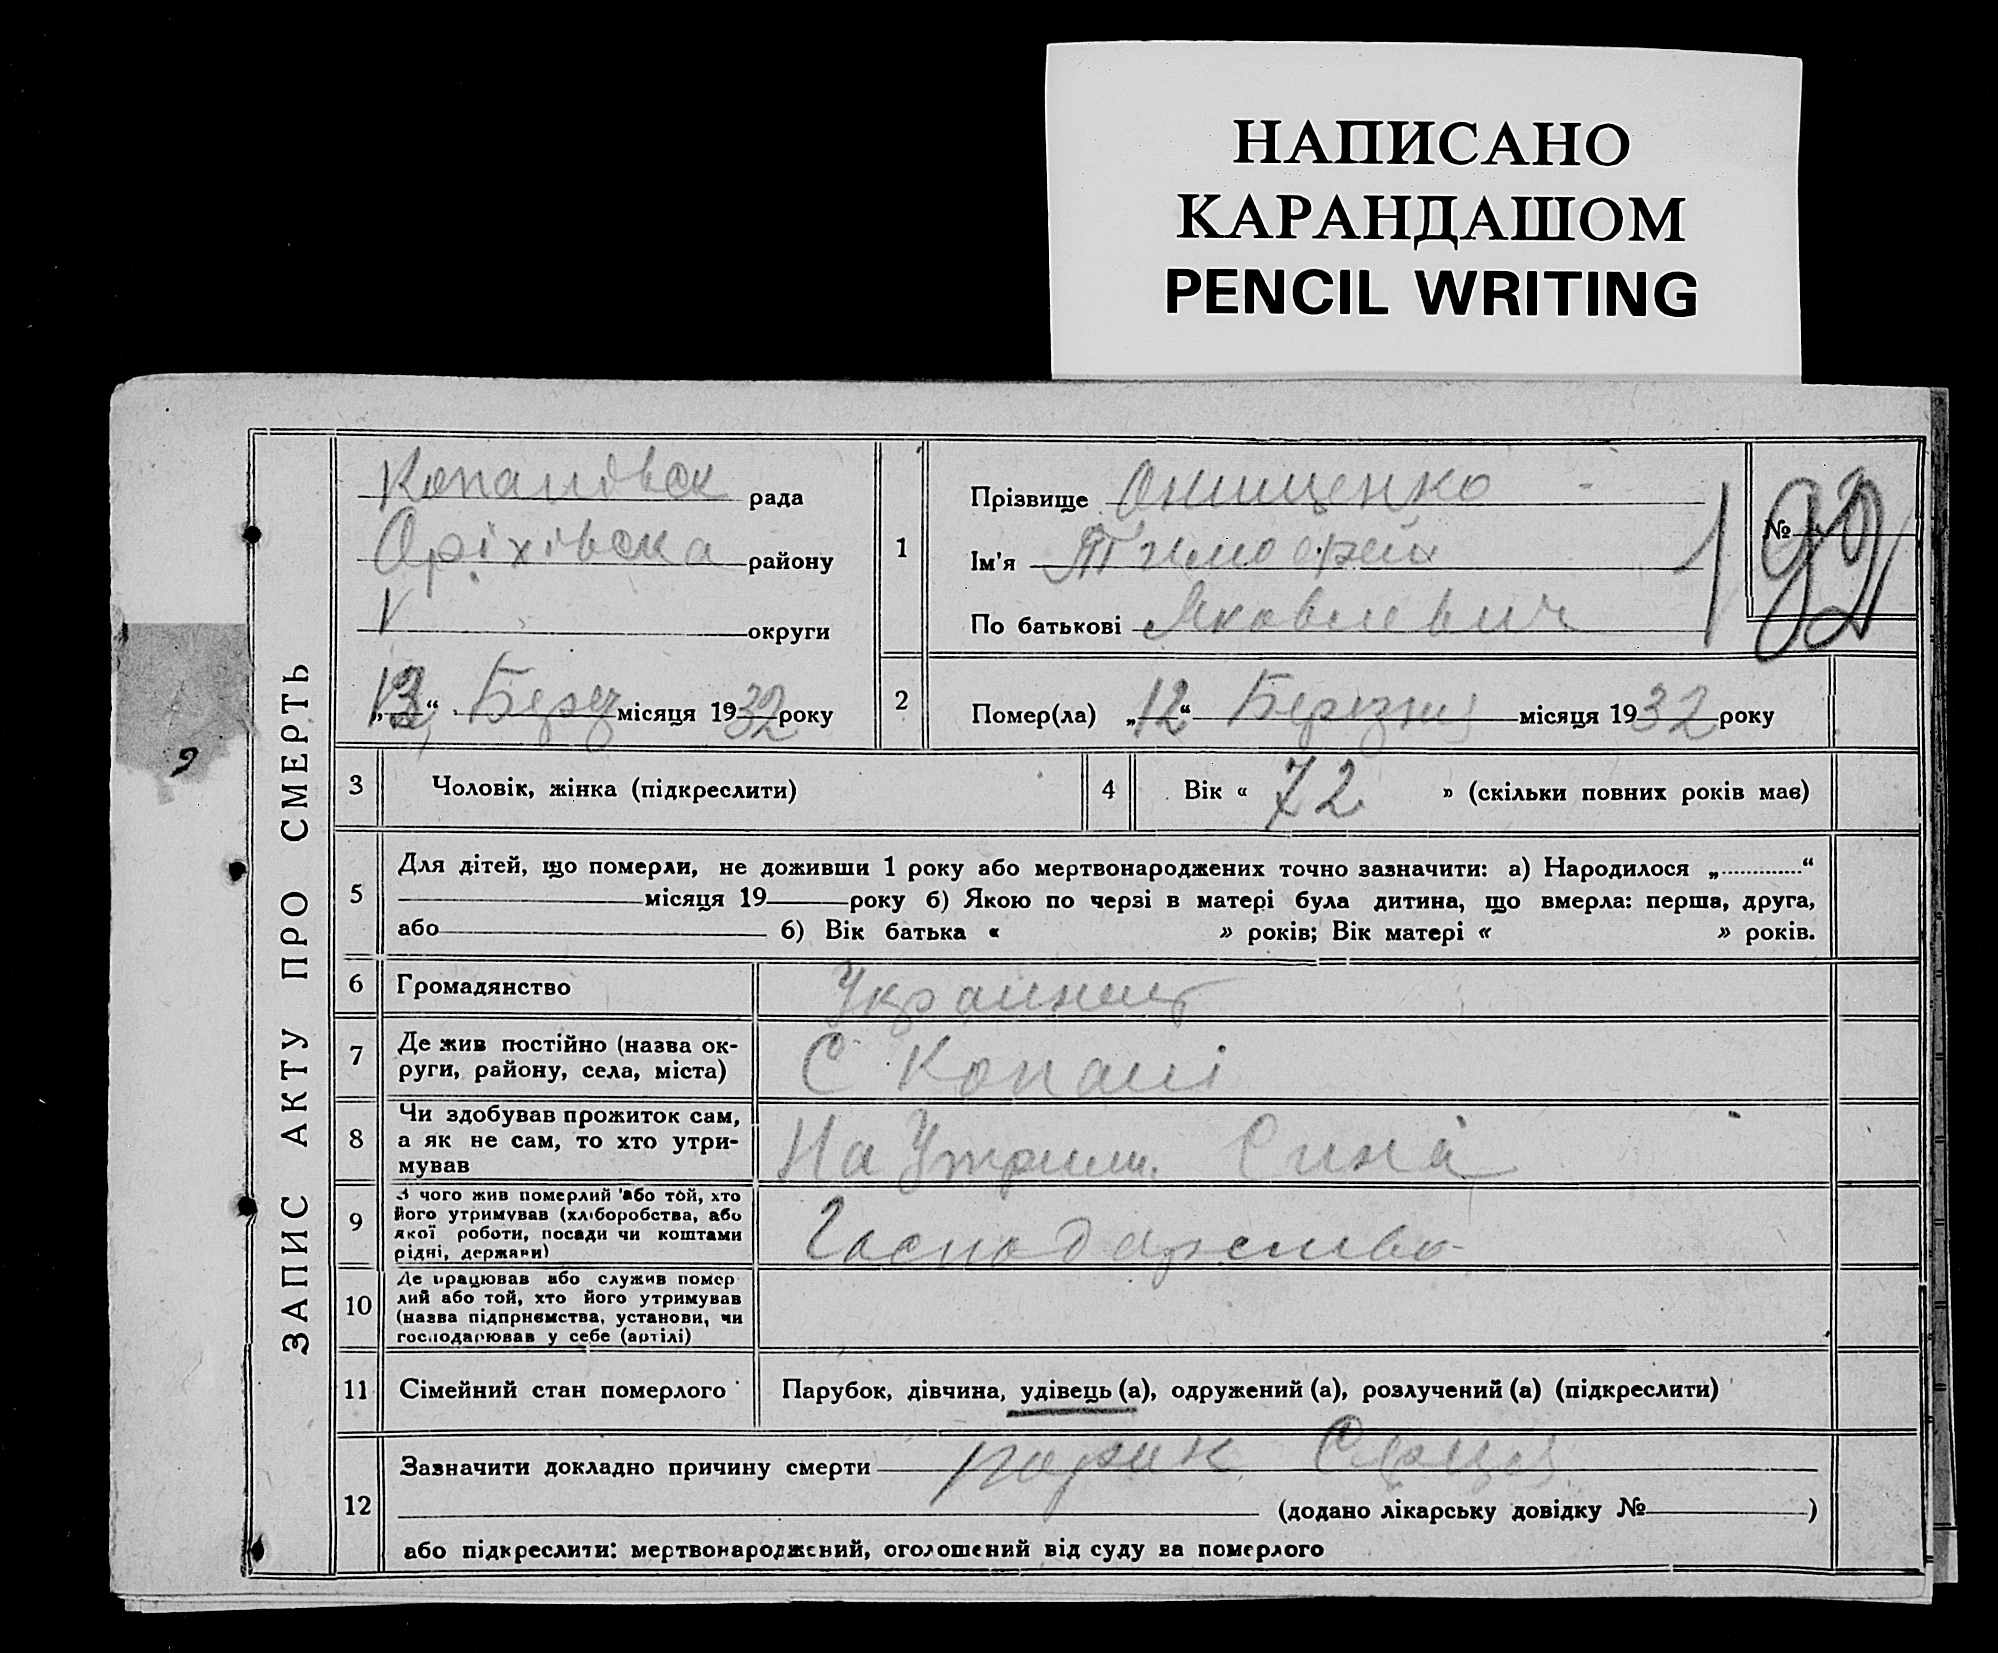 НАПИСАНО
КАРАНДАШОМ
PENCIL WRITING
ЗАПИС АКТУ ПРО СМЕРТЬ
Копанівськ рада
Оріхівська району
округи
Берез місяця 1932 року
1
Прізвище Онищенко
Ім'я Тимофей
По батькові Яковлевич
№
2
Помер(ла) „12“ Березня місяця 1932 року
3
Чоловік, жінка (підкреслити)
4
Вік « 72 » (скільки повних років має)
5
Для дітей, що померли, не доживши 1 року або мертвонароджених точно зазначити: а) Народилося „ “
місяця 19 року б) Якою по черзі в матері була дитина, що вмерла: перша, друга,
або б) Вік батька « » років; Вік матері « » років.
6
Громадянство
Украинец
7
Де жив постійно (назва ок-
руги, району, села, міста)
С Копані
8
Чи здобував прожиток сам,
а як не сам, то хто утри-
мував
На Утрим. Сина
9
З чого жив померлий або той, хто
його утримував (хліборобства, або
якої роботи, посади чи коштами
рідні, держави)
Господарство
10
Де працював або служив помер
лий або той, хто його утримував
(назва підприємства, установи, чи
господарював у себе (артілі)
11
Сімейний стан померлого
Парубок, дівчина, удівець (а), одружений (а), розлучений (а) (підкреслити)
12
Зазначити докладно причину смерти порик Серця
(додано лікарську довідку № )
або підкреслити: мертвонароджений, оголошений від суду за померлого